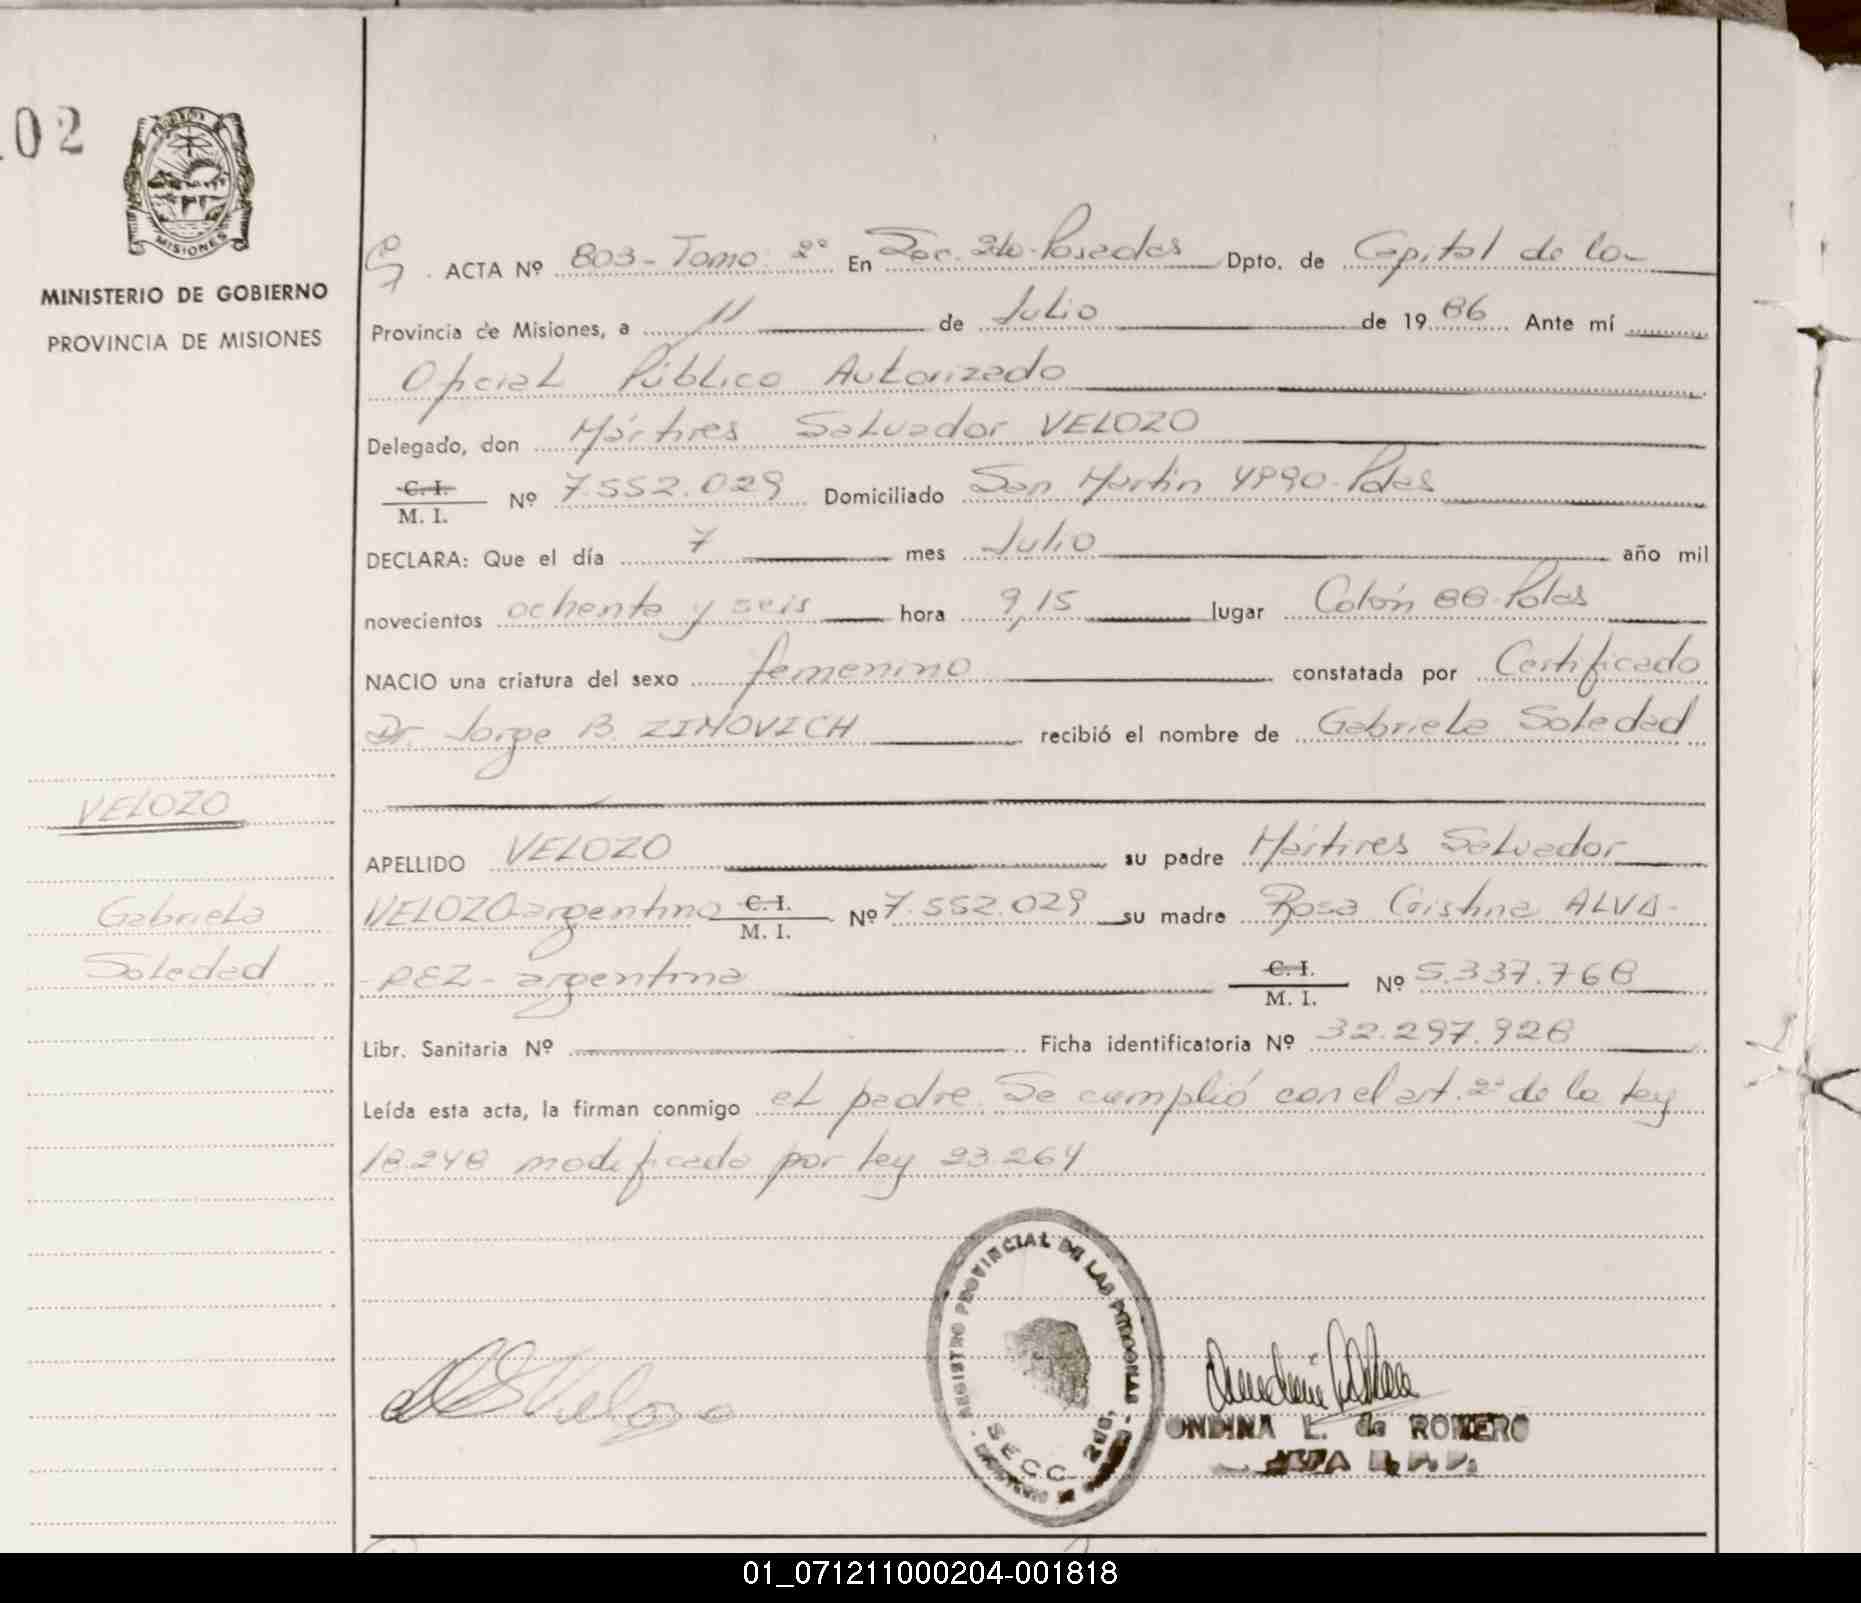 102
MISIONES
MINISTERIO DE GOBIERNO
PROVINCIA DE MISIONES
VELOZO
Gabriela
Soledad
ACTA Nº 803 - Tomo: 2º En Sec. 2da. Posadas Dpto. de Capital de la
Provincia de Misiones, a 11 de Julio de 1986 Ante mí
Oficial Público Autorizado
Delegado, don Mártires Salvador VELOZO
C. I.
M. I. Nº 7.552.029 Domiciliado San Martín 4890 - Pdas
DECLARA: Que el día 7 mes Julio año mil
novecientos ochenta y seis hora 9,15 lugar Colón 88 - Pdas
NACIO una criatura del sexo femenino constatada por Certificado
Dr. Jorge B. ZIMOVICH recibió el nombre de Gabriela Soledad
APELLIDO VELOZO su padre Mártires Salvador
VELOZO - argentino C. I. M. I. Nº 7.552.029 su madre Rosa Cristina ALVA-
-REZ - argentina C. I. M. I. Nº 5.337.768
Libr. Sanitaria Nº Ficha identificatoria Nº 32.297.928
Leída esta acta, la firman conmigo el padre. Se cumplió con el art. 2º de la ley
18.248 modificado por ley 23.264
REGISTRO PROVINCIAL DE LAS PERSONAS
SECC. 2da.
MSVelozo
ONDINA E. de ROMERO
01_071211000204-001818